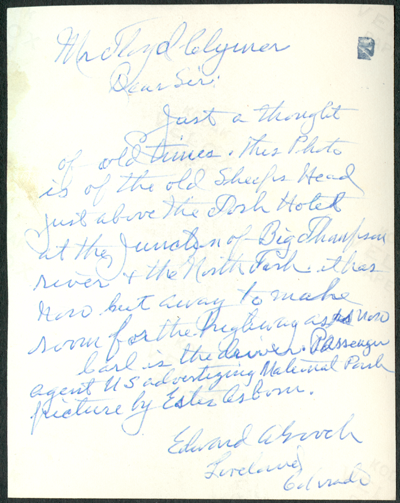 Mr Floyd Clymer
Dear Sir:
Just a thought
of old times. This Photo
is of the old Sheeps Head
just above the Hotel
at the Junction of Big Thompson
river & the North Fork. it has
now but away to make
room for the highway as is now
Carl is the driver. Passenger
agent US advertizing National Park
picture by Estes Osborn.
Edward A
Loveland
Colorado